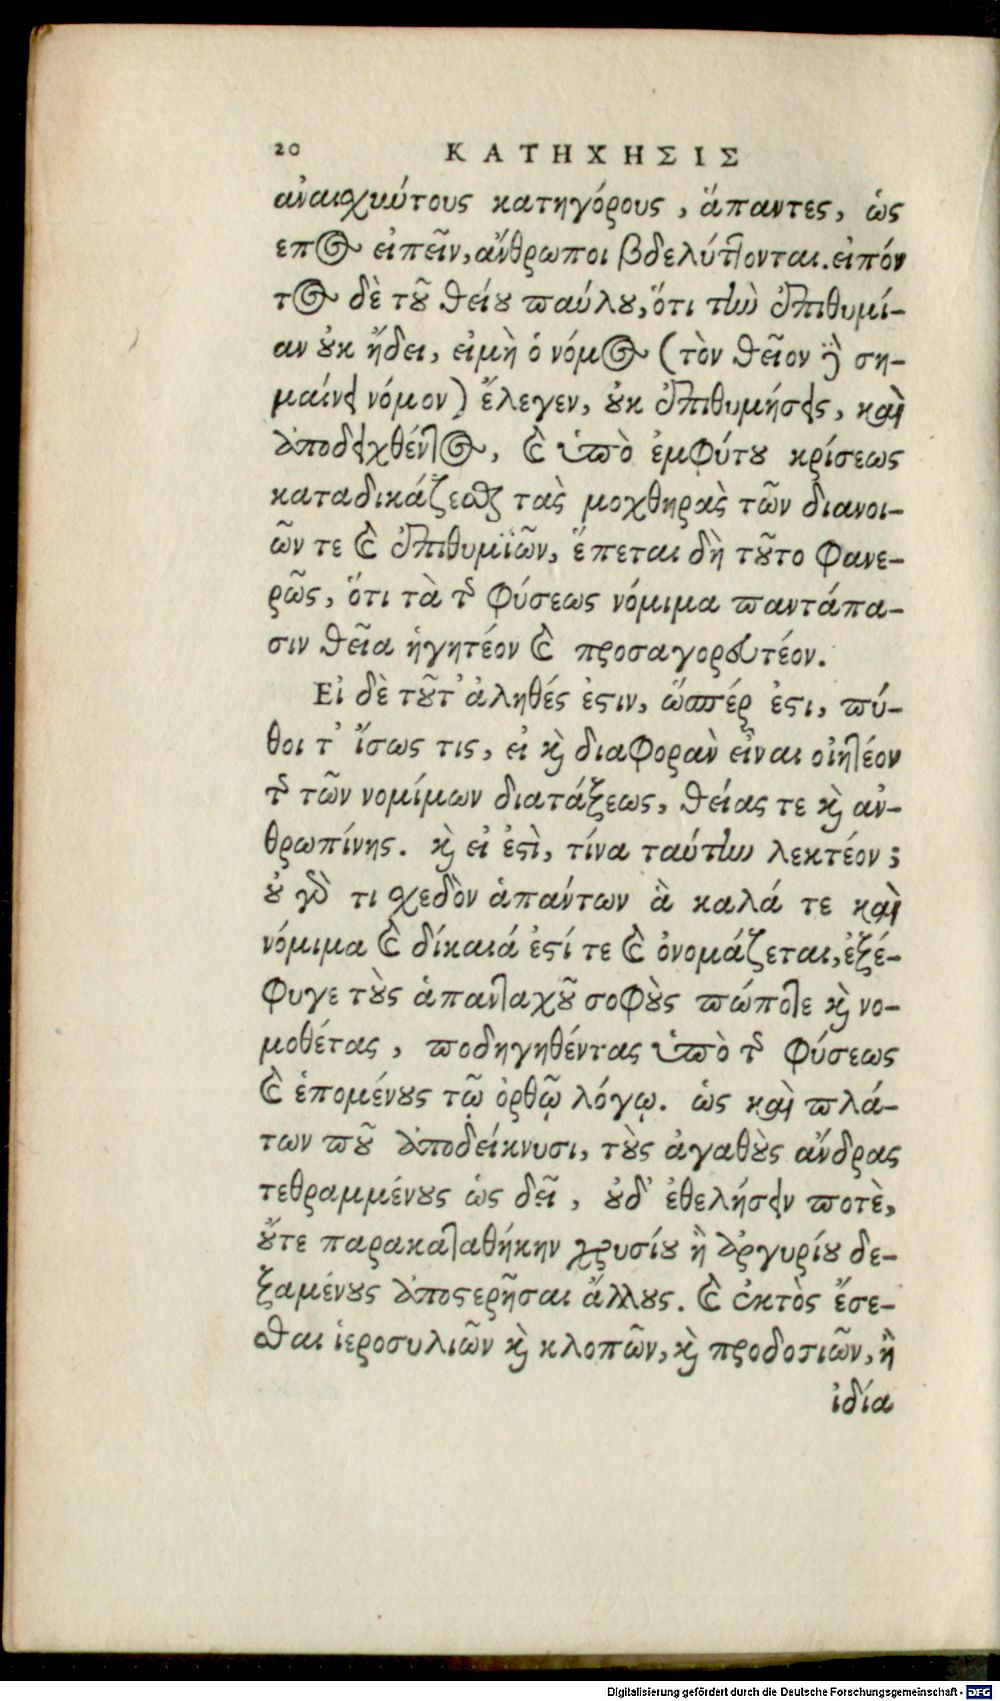 20 ΚΑΤΗΧΗΣΙΣ
ἀναισχύντους κατηγόρους, ἅπαντες, ὡς
επος εἰπεῖν, ἄνθρωποι βδελύττονται. εἰπόν
τος δὲ τοῦ θείου παύλου, ὅτι τὴν ἐπιθυμί-
αν οὐκ ᾔδει, εἰμὴ ὁ νόμος (τὸν θεῖον δὲ ση-
μαίνει νόμον) ἔλεγεν, οὐκ ἐπιθυμήσεις, καὶ
ἀποδειχθέντος, καὶ ὑπὸ ἐμφύτου κρίσεως
καταδικάζεσθαι τὰς μοχθηρὰς τῶν διανοι-
ῶν τε καὶ ἐπιθυμϊῶν, ἕπεται δὴ τοῦτο φανε-
ρῶς, ὅτι τὰ τῆς φύσεως νόμιμα παντάπα-
σιν θεῖα ἡγητέον καὶ προσαγορευτέον.
Εἰ δὲ τοῦτ' ἀληθές ἐστιν, ὥσπέρ ἐστι, πύ-
θοι τ' ἴσως τις, εἰ καὶ διαφορὰν εἶναι οἰητέον
τῆς τῶν νομίμων διατάξεως, θείας τε καὶ ἀν-
θρωπίνης. καὶ εἰ ἐστὶ, τίνα ταύτην λεκτέον;
οὐ γάρ τι σχεδὸν ἁπάντων ἃ καλά τε καὶ
νόμιμα καὶ δίκαιά ἐστί τε καὶ ὀνομάζεται, ἐξέ-
φυγε τοὺς ἁπανταχοῦ σοφοὺς πώποτε καὶ νο-
μοθέτας, ποδηγηθέντας ὑπὸ τῆς φύσεως
καὶ ἑπομένους τῷ ὀρθῷ λόγῳ. ὡς καὶ πλά-
των ποῦ ἀποδείκνυσι, τοὺς ἀγαθοὺς ἄνδρας
τεθραμμένους ὡς δεῖ, οὐδ' ἐθελήσειν ποτὲ,
οὔτε παρακαταθήκην χρυσίου ἢ ἀργυρίου δε-
ξαμένους ἀποστερῆσαι ἄλλους. καὶ ἐκτὸς ἔσε-
σθαι ἱεροσυλιῶν καὶ κλοπῶν, καὶ προδοσιῶν, ἢ
ἰδία
Digitalisierung gefördert durch die Deutsche Forschungsgemeinschaft - DFG